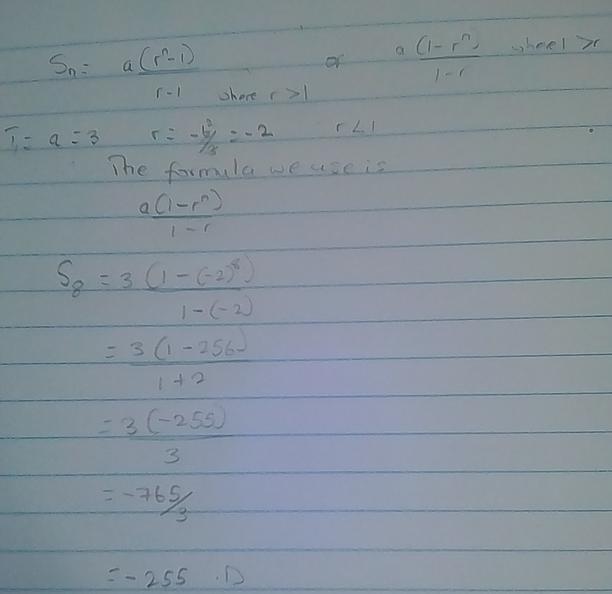 Sn = a(rⁿ-1) / r-1 where r>1 or a(1-rⁿ) / 1-r where 1>r
T₁ = a = 3 r = = -2 r<1
The formula we use is
a(1-rⁿ)
1-r
S₈ = 3(1-(-2)⁸)
1-(-2)
= 3(1-256)
1+2
= 3(-255)
3
= -765/3
= -255 .D